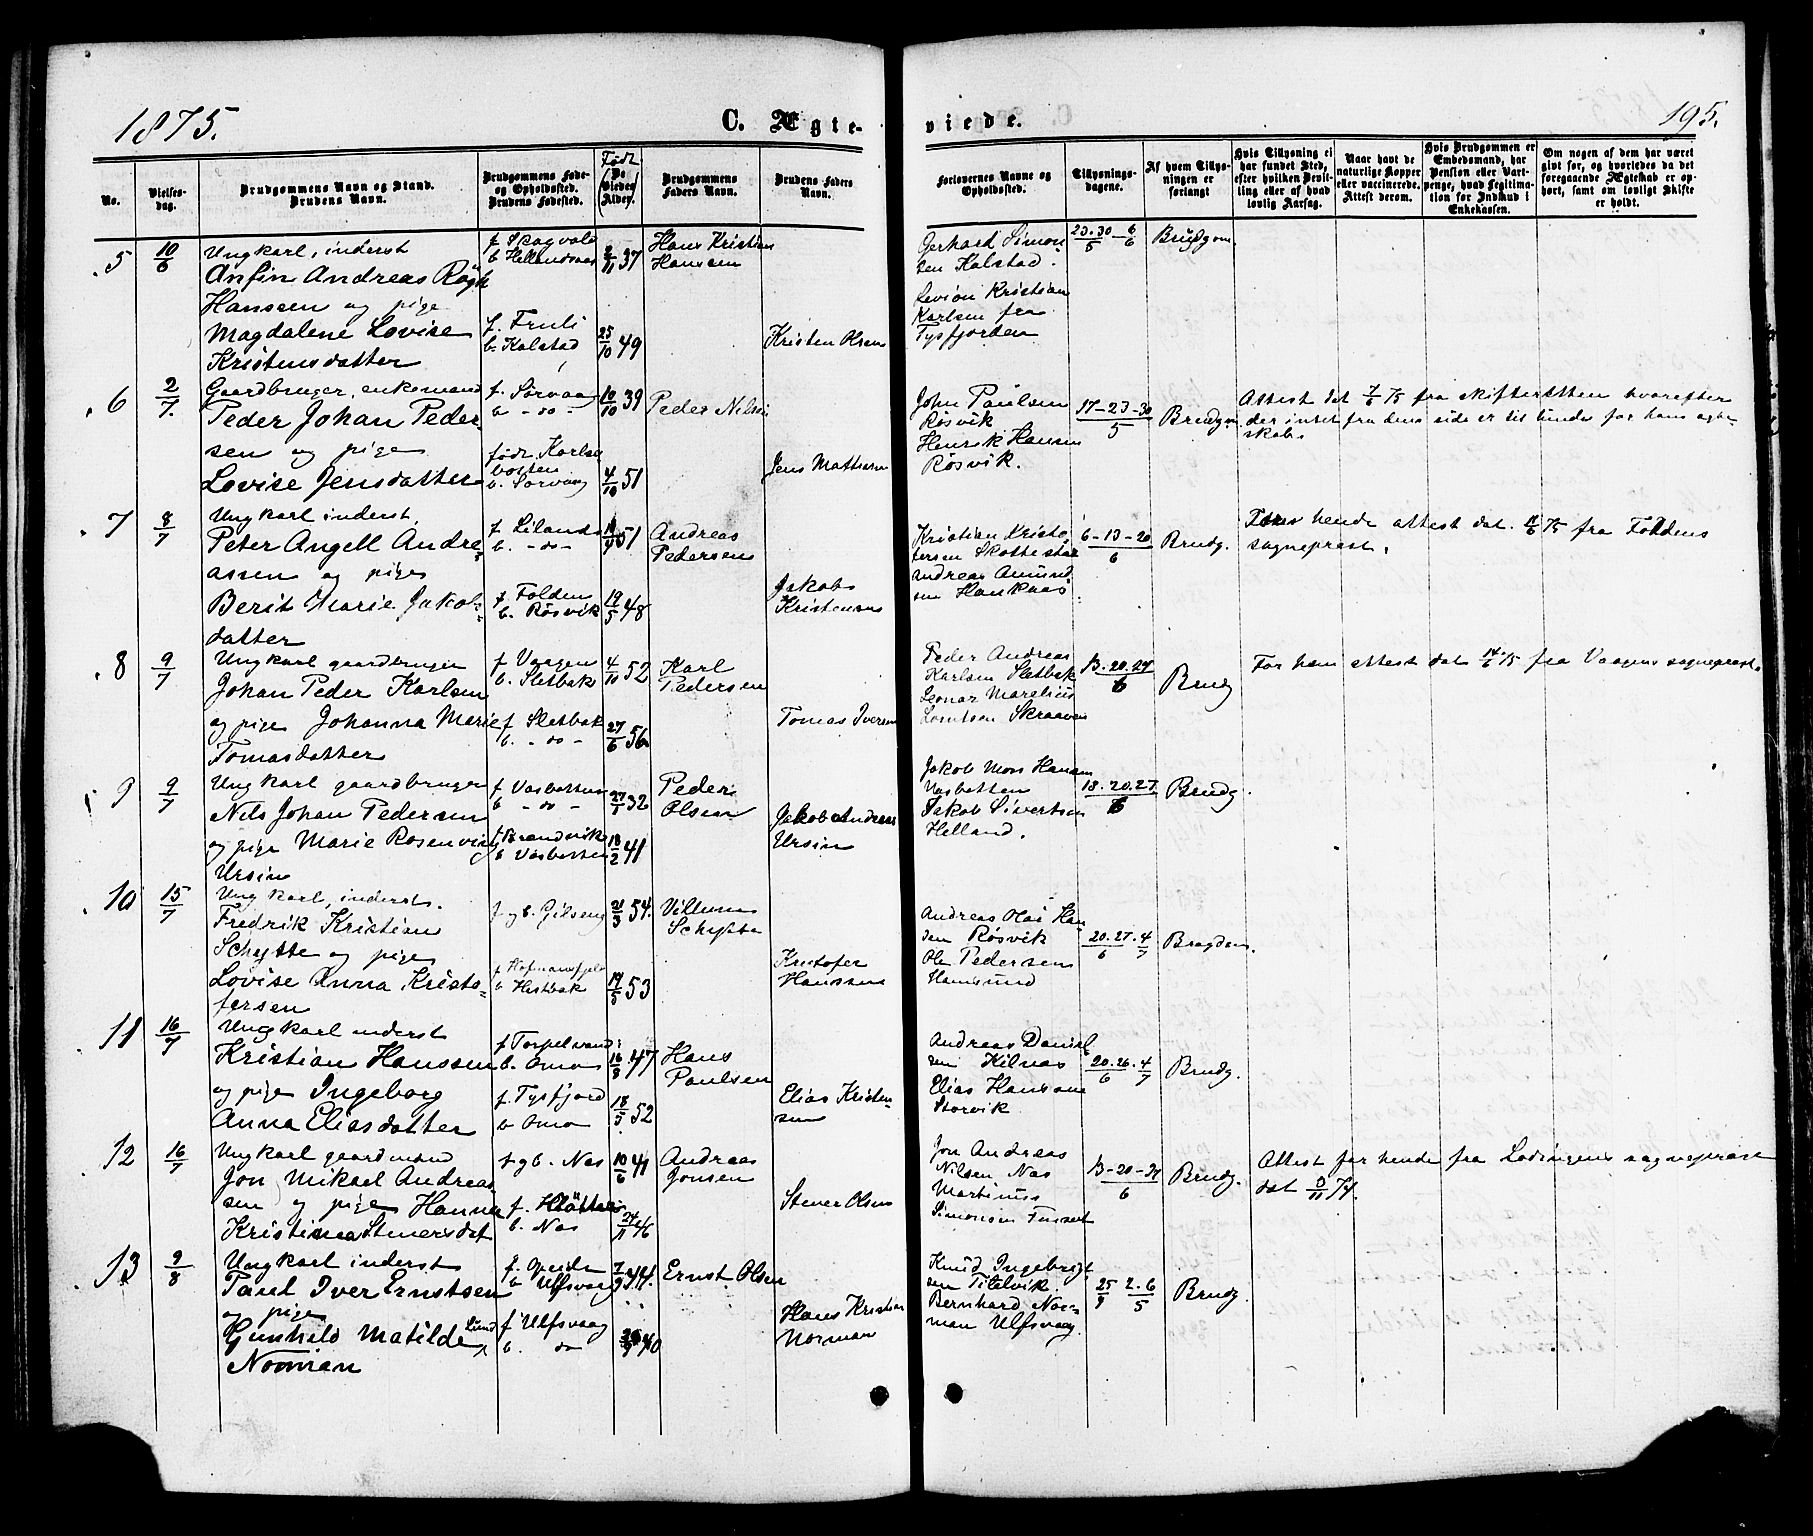 1875.
C. Ægte-
viede.
195.
No.
Vielses-
dag.
Brudgommens Navn og Stand.
Brudens Navn.
Brudgommens Føde-
og Opholdssted.
Brudens Fødested.
Født
De
Viedes
Alder.
Brudgommens
Faders Navn.
Brudens Faders
Navn.
Forlovernes Navne og
Opholdssted.
Tillysnings-
dagene.
Af hvem Tillys-
ningen er
forlangt
Hvis Tillysning ei
har fundet Sted,
efter hvilken Bevil-
ling eller af hvad
lovlig Aarsag.
Naar havt de
naturlige Kopper
eller vaccinerede.
Attest derom.
Hvis Brudgommen er
Embedsmand, har
Pension eller Vart-
penge, hvad Legitima-
tion for Indskud i
Enkekassen.
Om nogen af dem har været
givt før, og hvorledes da det
foregaaende Ægteskab er op-
hørt, samt om lovligt Skifte
er holdt.
5 10/6 Ungkarl, inderst
Anfin Andreas
Hanssen og pige
Magdalene Lovise
Kristensdatter
f. Skagvold
2/11 37
Hans Kristian
Hanssen
b. Kalstad
25/10 49
Kristen
Gerhard Simon-
sen Kalstad.
Kristian
Karlsen fra
Tysfjorden
23.30-6/6
5
Brudgom
6 2/7 Gaardbruger, enkemand
Peder Johan Peder-
sen og pige
Lovise Jensdatter
f. Sørvaag
b. -do-
10/10 39
Peder Nilsen
født Karls-
botten
b. Sørvaag
4/10 51
Jens Matisen
John Paulsen
Røsvik
Henrik Hansen
Røsvik.
17-23-30
5
Brudgom
Attest dat 7/6 75 fra skifteretten hvorefter
der intet fra dens side er til hinder for hans ægte-
skab.
7 8/7 Ungkarl inderst.
Peter Angell Andre-
assen og pige
Berit Marie Jakobs-
datter
f. Lilands
b. -do-
51
Andreas
Pedersen
f. Folden
b. Røsvik
19/5 48
Jakob
Kristensen
Kristian Kristo-
fersen
Andreas Amund-
sen
6-13-20
6
Brudg.
hende attest dat. 75 fra Foldens
sogneprest.
8 9/7 Ungkarl gaardbruger
Johan Peder Karlsen
og pige Johanna Marie
Tomasdatter
f. Vaagen
b. Sletbak
4/10 52
Karl
Pedersen
f. Sletbak
b. -do-
27/6 56
Tomas Iversen
Peder Andreas
Karlsen Sletbak
Leonar Marelius
Skraaven
13.20.27
6
Brudg
For ham attest dat 14/6 75 fra Vaagens sogneprest.
9 9/7 Ungkarl gaardbruger
Nils Johan Pedersen
og pige Marie Rosenving
Ursin
f. Vasbotten
b. -do-
27/1 32
Peder
Olsen
f. Brandvik
b. Vasbotten
18/2 41
Jakob Andreas
Ursin
Jakob Mons Hansen
Vasbotten
Jakob Sivertsen
Helland.
18.20.27
6
Brudg.
10 15/7 Ungkarl, inderst.
Fredrik Kristian
Schytte og pige
Lovise Anna Kristo-
fersen
f og b.
21/3 54.
Villum
Schytte
b. Hestbak
19/5 53
Kristofer
Hanssen
Andreas Olai Han-
sen Røsvik
Ole Pedersen
Hamsund
20.27.4/7
6
11 16/7 Ungkarl inderst
Kristian Hanssen
og pige Ingeborg
Anna Eliasdatter
16/8 47
Hans
Paulsen
f. Tysfjord
18/5 52
Elias Kristen-
sen
Andreas Daniel-
sen Kilnæs
Elias Hansen
Storvik
20.26.4/7
6
Brudg.
12 16/7 Ungkarl gaardmand
Jon Mikael Andreas-
sen og pige Hanna
Kristina Stenersdat
f. og b. Nes
10/6 41
Andreas
Jonsen
b. Nes
24/11 46
Stener Olsen
Jon Andreas
Nilsen Nes
Martinus
Simonsen
13-20-27
6
Brudg.
Attest for hende fra Lødingens sogneprest
dat 74.
13 9/8 Ungkarl inderst
Paul Iver Ernstsen
og pige
Gunhild Matilde Lund
Norman
f. Opeide
b. Ulfsvaag
44.
Ernst Olsen
f. Ulfsvaag
b. do
40
Hans Kristian
Norman
Knud Ingebrigt-
sen Titelvik
Bernhard Nor-
man Ulfsvaag
Brudg.